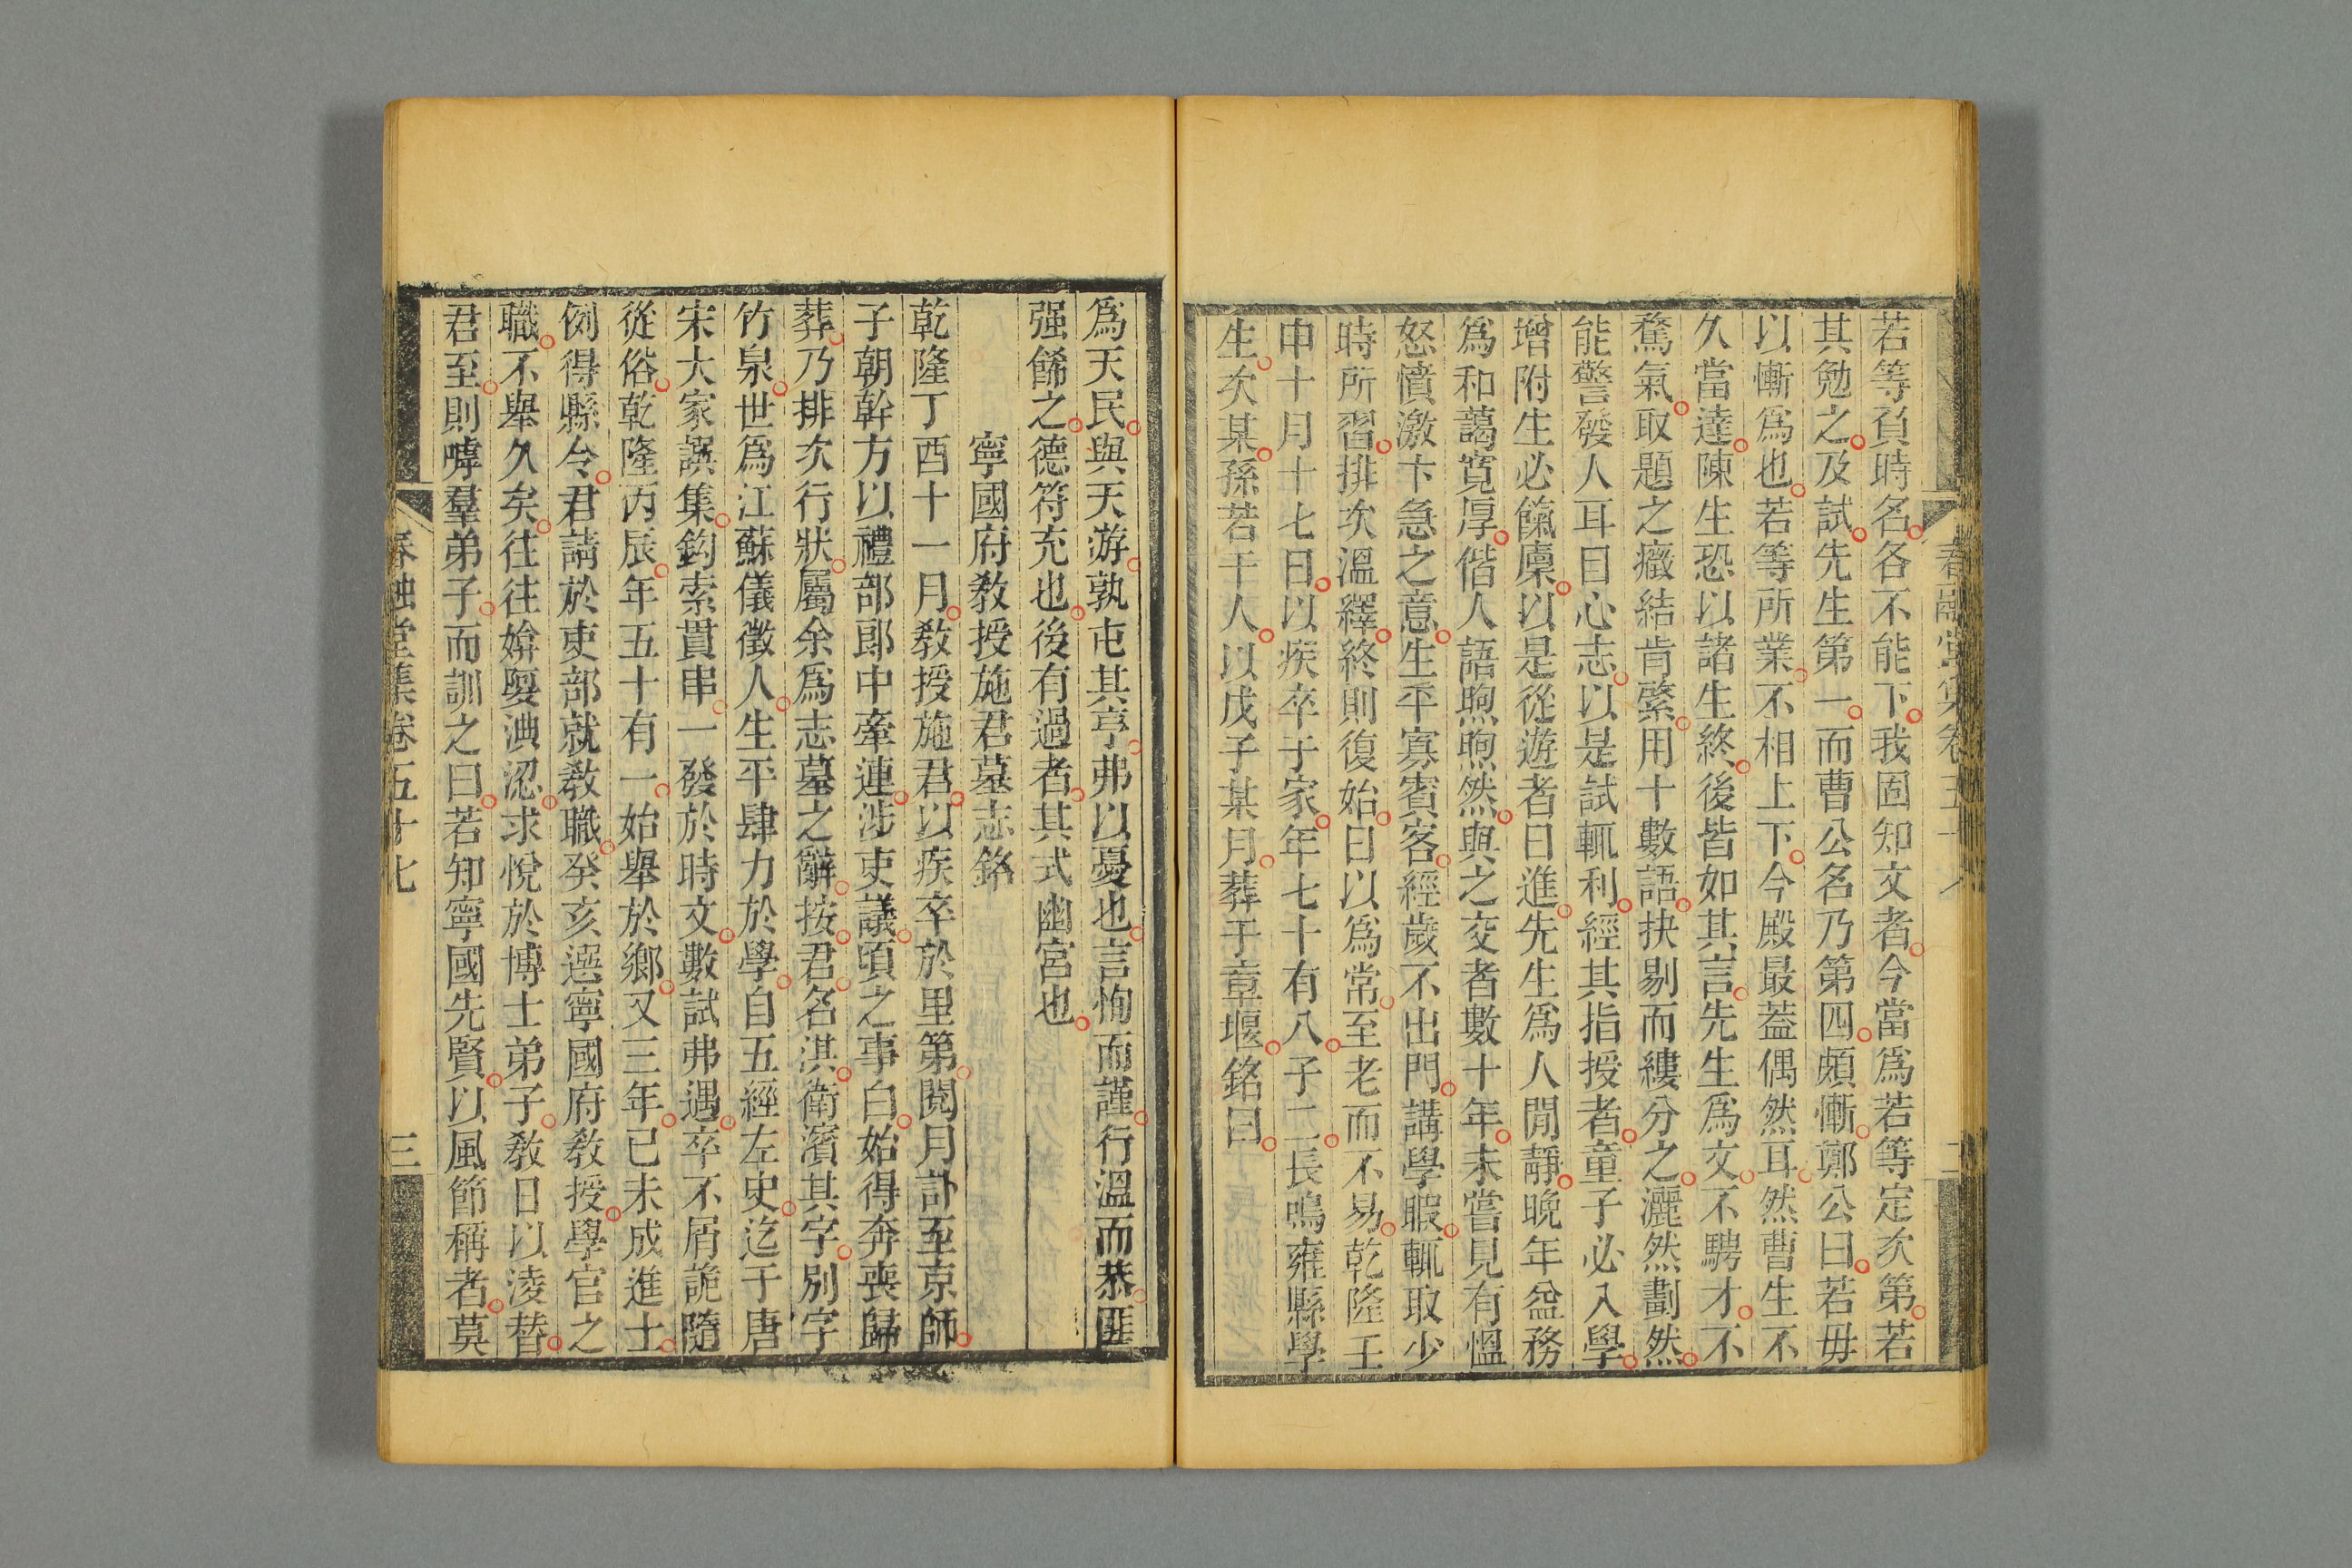 若等負時名各不能下我固知文者今當爲若等定次第若
其勉之及試先生第一而曹公名乃第四頗慚鄭公曰若毋
以慚爲也若等所業不相上下今殿最蓋偶然耳然曹生不
久當達陳生恐以諸生終後皆如其言先生爲文不騁才不
騖氣取題之癥結肯綮用十數語抉剔而縷分之灑然劃然
能警發人耳目心志以是試輒利經其指授者童子必入學
增附生必餼廩以是從遊者日進先生爲人閒靜晚年益務
爲和藹寬厚偕人語煦煦然與之交者數十年未嘗見有慍
怒憤激卞急之意生平寡賓客經歲不出門講學暇輒取少
時所習排次溫繹終則復始日以爲常至老而不易乾隆壬
申十月十七日以疾卒于家年七十有八子二長鳴雍縣學
生次某孫若干人以戊子某月葬于章堰銘曰
爲天民與天游孰屯其亨弗以憂也言恂而謹行溫而恭匪
强餙之德符充也後有過者其式幽宮也
寧國府教授施君墓志銘
乾隆丁酉十一月教授施君以疾卒於里第閱月訃至京師
子朝幹方以禮部郎中牽連涉吏議頃之事白始得奔喪歸
葬乃排次行狀屬余爲志墓之辭按君名淇衛濱其字別字
竹泉世爲江蘇儀徵人生平肆力於學自五經左史迄于唐
宋大家譔集鉤索貫串一發於時文數試弗遇卒不屑詭隨
從俗乾隆丙辰年五十有一始舉於鄉又三年已未成進士
例得縣令君請於吏部就教職癸亥選寧國府教授學官之
職不舉久矣往往媕婀淟涊求悅於博士弟子教日以淩替
君至則嘑羣弟子而訓之曰若知寧國先賢以風節稱者莫
春融堂集卷五十七
三